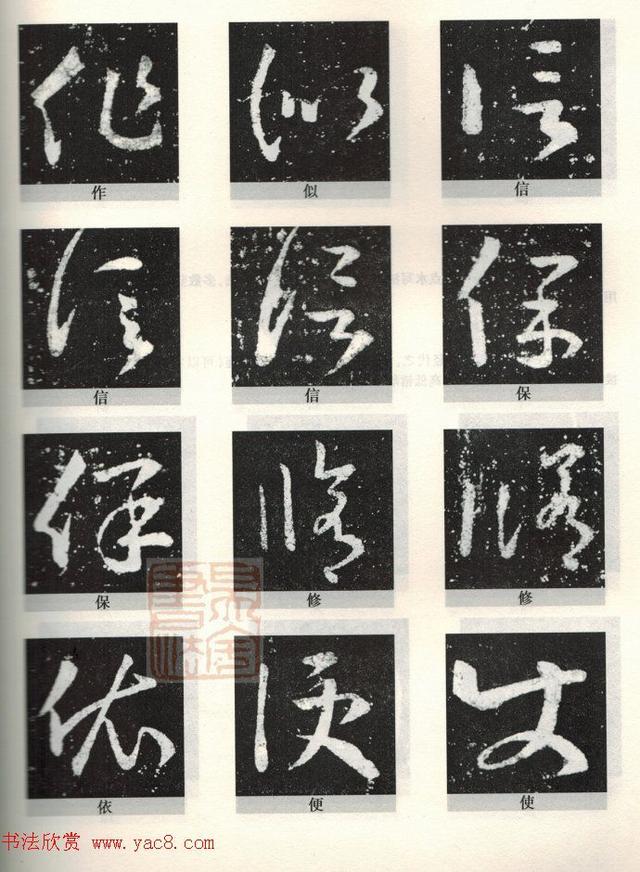 作 似 信
信 信 保
保 修 修
依 便 使
书法欣赏 www.yac8.com